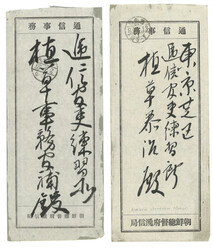 通信事務
遞信官吏練習所
植草事務官補殿
通信事務
東京芝区
遞信官吏練習所
植草恭治殿
朝鮮總督府遞信局